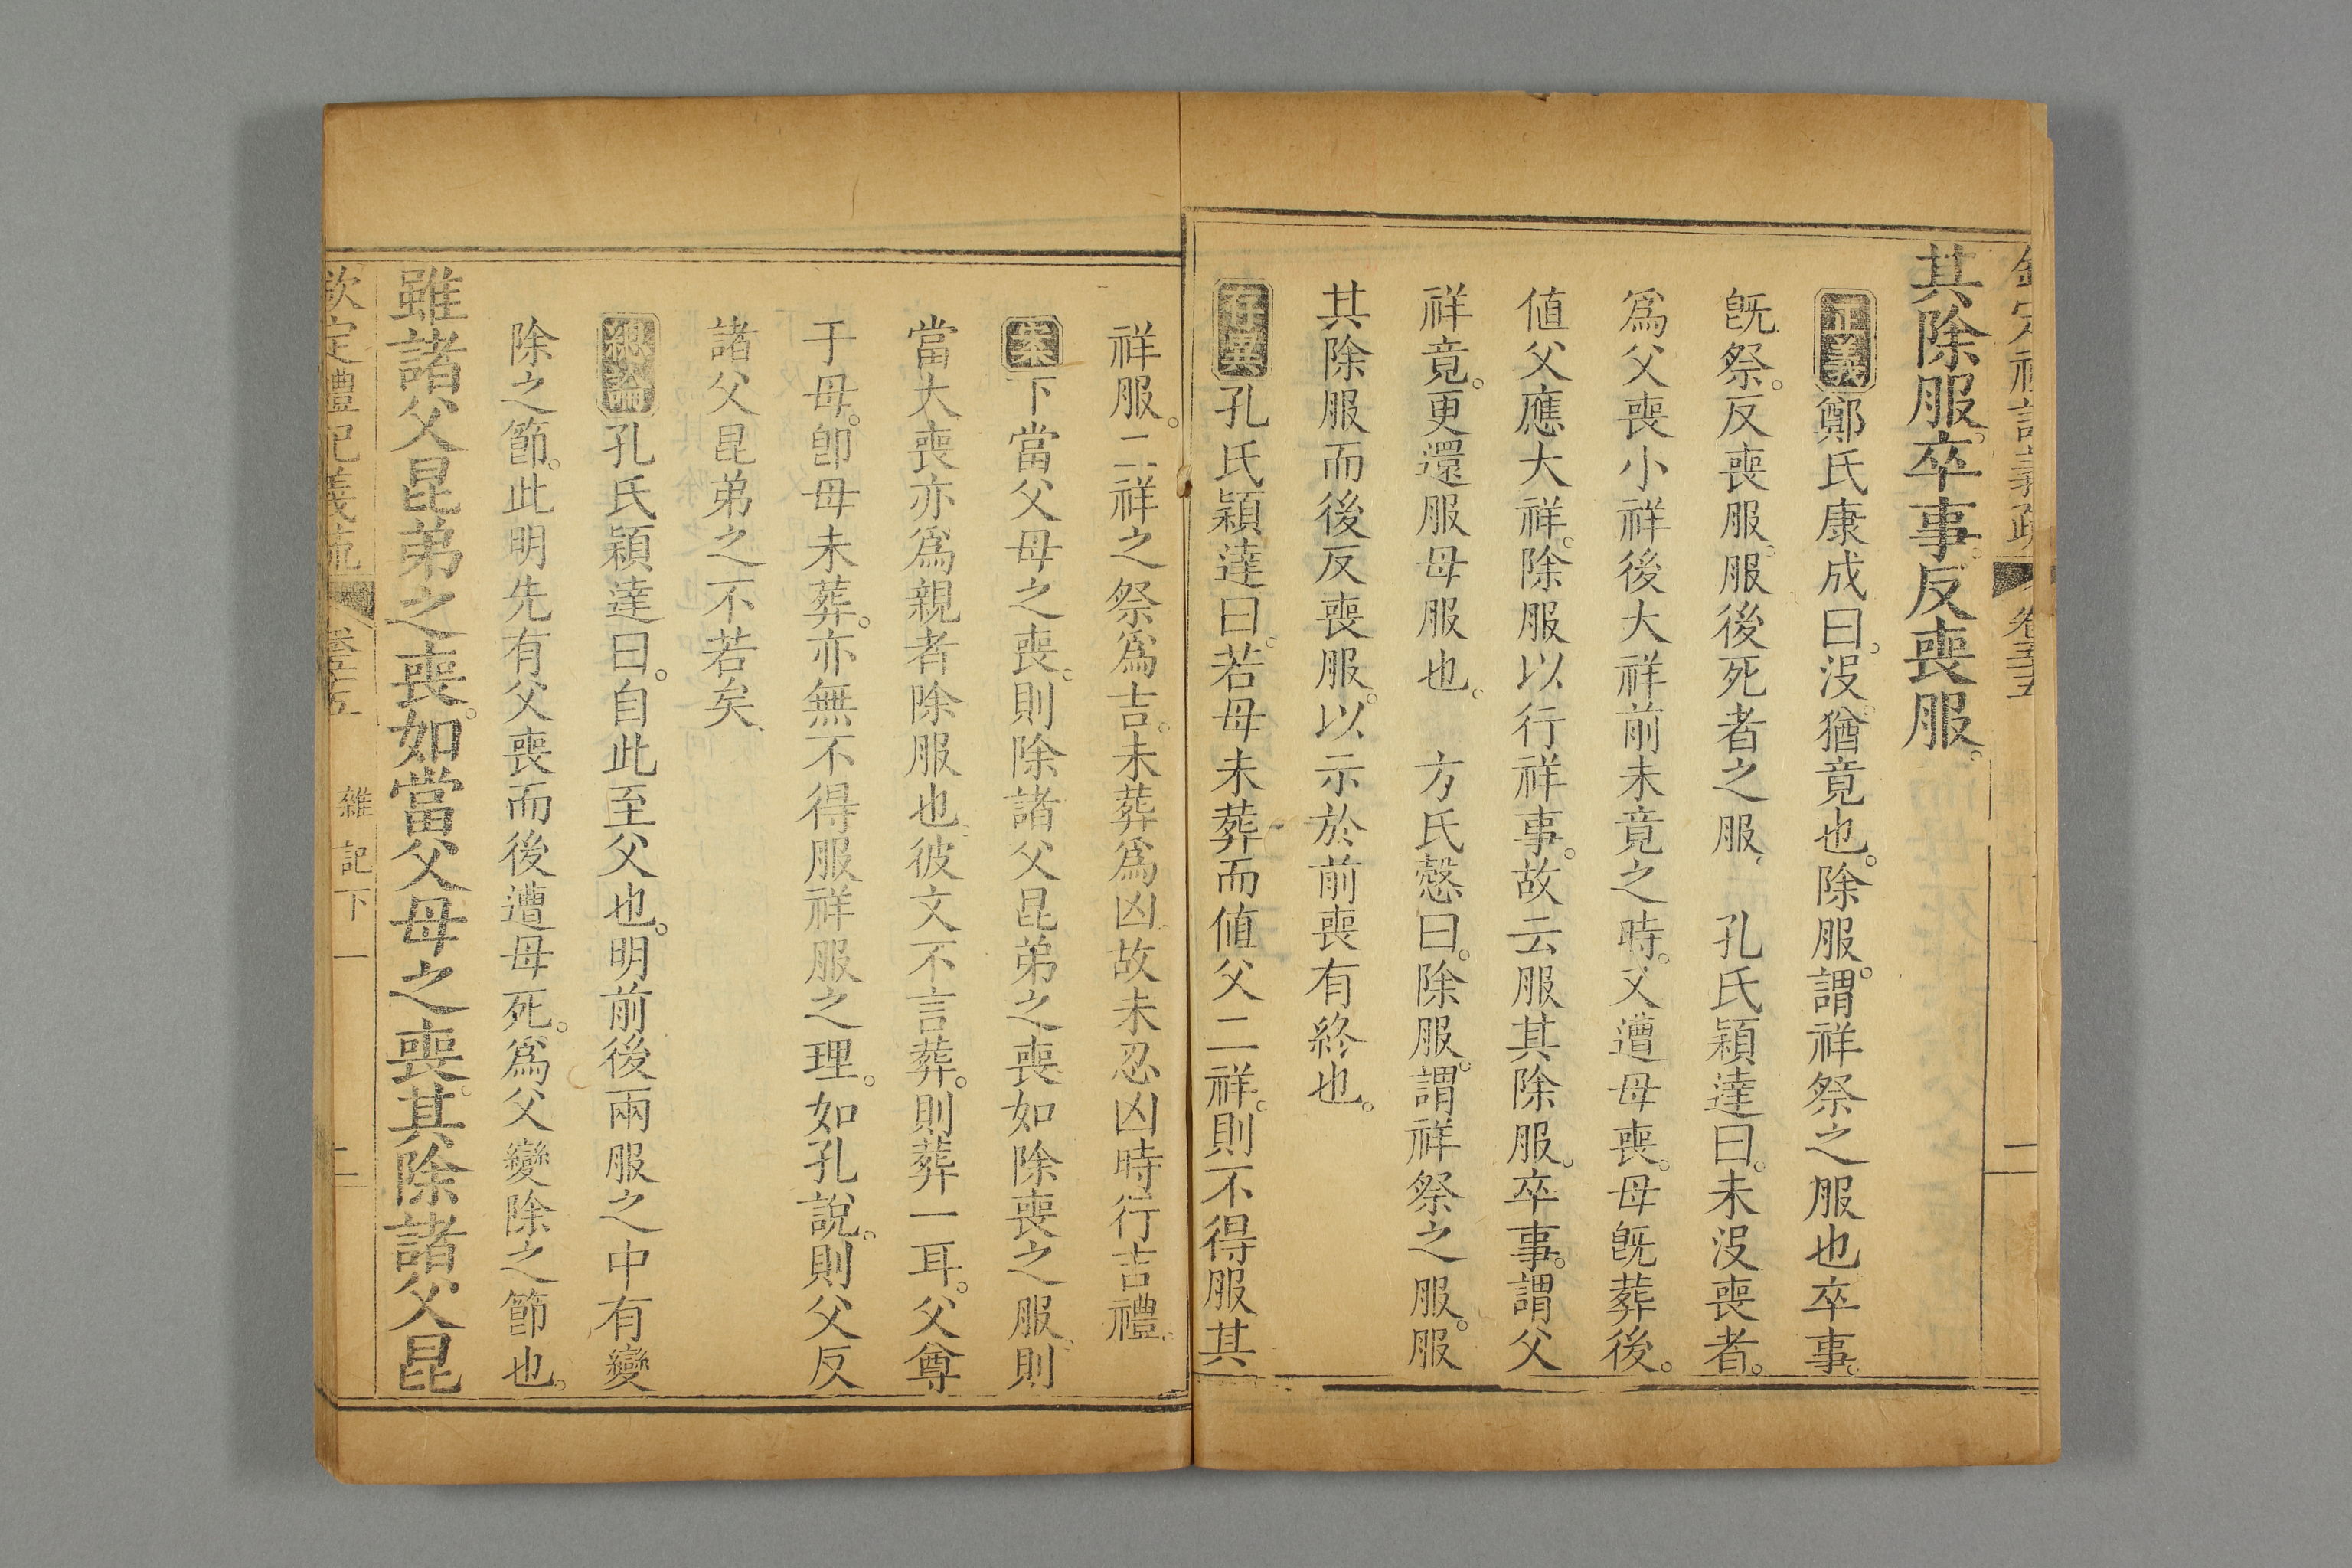 其除服。卒事。反喪服。
正義鄭氏康成曰。沒猶竟也。除服。謂祥祭之服也卒事。
既祭。反喪服。服後死者之服。　孔氏穎達曰。未沒喪者。
爲父喪小祥後大祥前未竟之時。又遭母喪。母既葬後。
値父應大祥。除服以行祥事。故云服其除服。卒事。謂父
祥竟。更還服母服也。　方氏慤曰。除服。謂祥祭之服。服
其除服而後反喪服。以示於前喪有終也。
存異孔氏穎達曰。若母未葬而値父二祥。則不得服其
祥服。二祥之祭爲吉。未葬爲凶。故未忍凶時行吉禮。
案下當父母之喪。則除諸父昆弟之喪如除喪之服。則
當大喪亦爲親者除服也。彼文不言葬。則葬一耳。父尊
于母。卽母未葬。亦無不得服祥服之理。如孔說。則父反
諸父昆弟之不若矣。
總論孔氏穎達曰。自此至父也。明前後兩服之中有變
除之節。此明先有父喪而後遭母死。爲父變除之節也。
雖諸父昆弟之喪。如當父母之喪。其除諸父昆
欽定禮記義疏　卷五十五　雜記下一　二